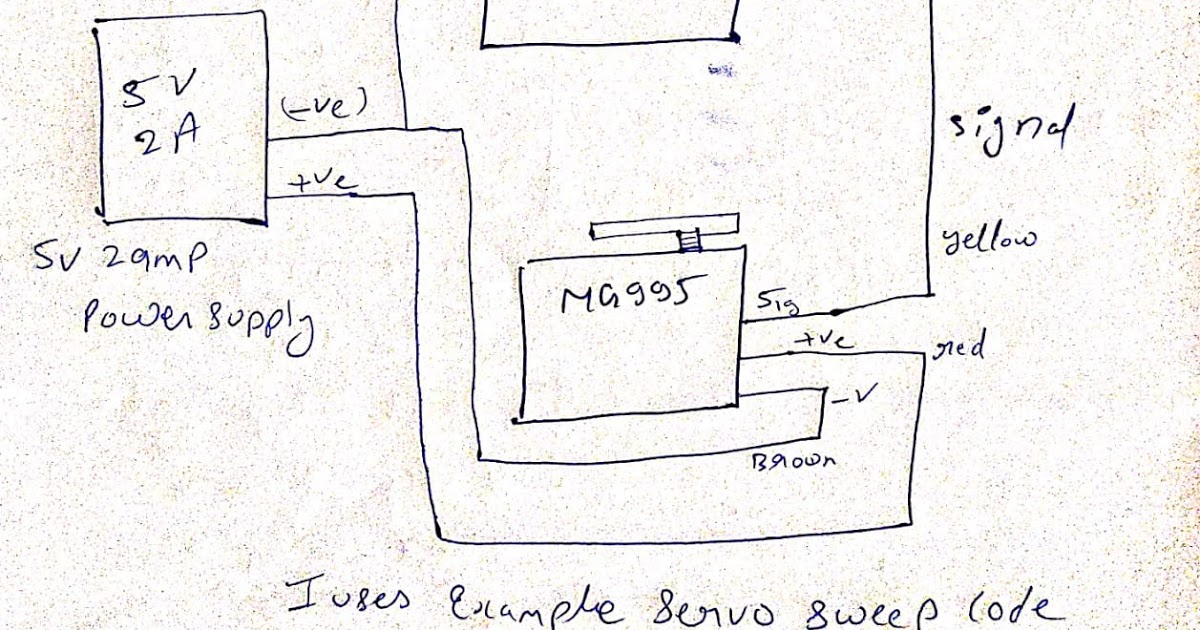 5V
2A
(-ve)
+ve
5V 2amp
Power supply
signal
yellow
MG995
Sig
+ve
red
-V
Brown
I uses Example Servo sweep code